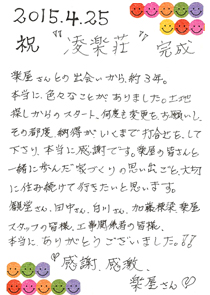 2015.4.25
祝 "凌楽荘" 完成
楽屋さんとの出会いから、約3年。
本当に、色々なことがありました。土地
探しからのスタート、何度も変更をお願いし、
その都度、納得がいくまで打合せをして
下さり、本当に感謝です。楽屋の皆さんと
一緒に歩んだ家づくりの思い出ごと、大切
に住み続けて行きたいと思います。
田中さん、白川さん、加藤棟梁、楽屋
スタッフの皆様、工事関係者の皆様、
本当にありがとうございました!!
感謝、感激、
楽屋さん♡